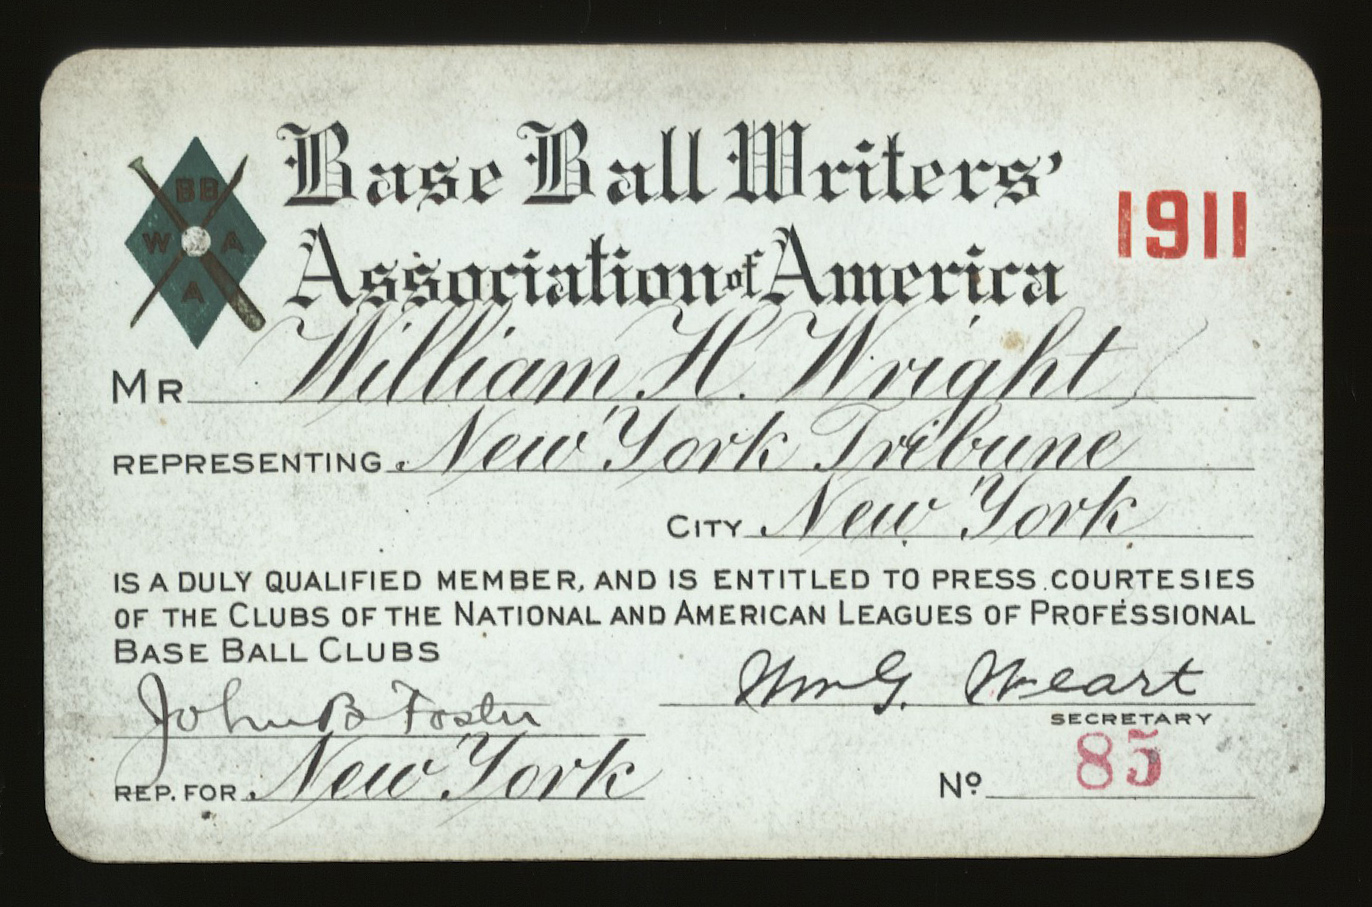 BB
W A
A
Base Ball Writers'
Association of America
1911
MR William H. Wright
REPRESENTING New York Tribune
CITY New York
IS A DULY QUALIFIED MEMBER, AND IS ENTITLED TO PRESS COURTESIES
OF THE CLUBS OF THE NATIONAL AND AMERICAN LEAGUES OF PROFESSIONAL
BASE BALL CLUBS
John B Foster
Wm G. Weart
SECRETARY
REP. FOR New York
No. 85